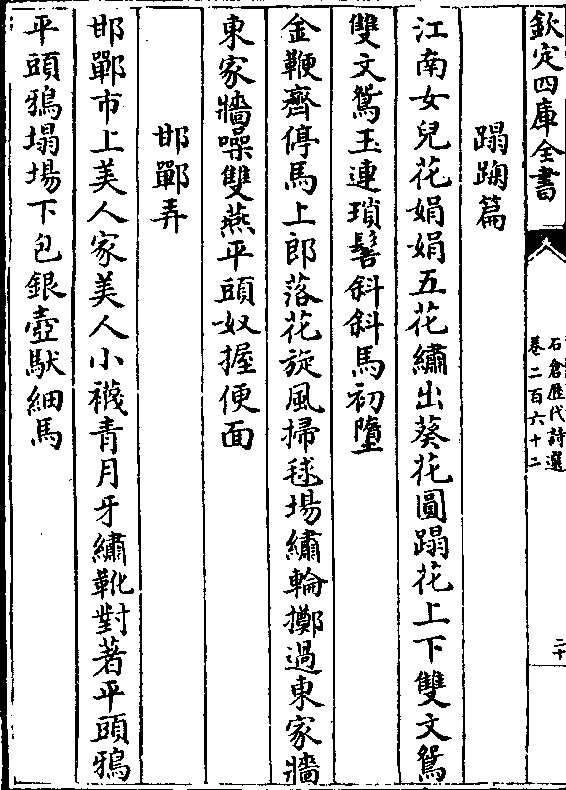 欽定四庫全書
石倉歴代詩選
卷二百六十二
二十
蹋踘篇
江南女兒花娟娟五花繡出葵花圓蹋花上下雙文鴛
雙文鴛玉連瑣髻斜斜馬初墮
金鞭齊停馬上郎落花旋風掃毬場繡輪擲過東家牆
東家牆噪雙燕平頭奴握便面
邯鄲弄
邯鄲市上美人家美人小襪青月牙繡靴對著平頭鴉
平頭鴉塌場下包銀壺馱細馬